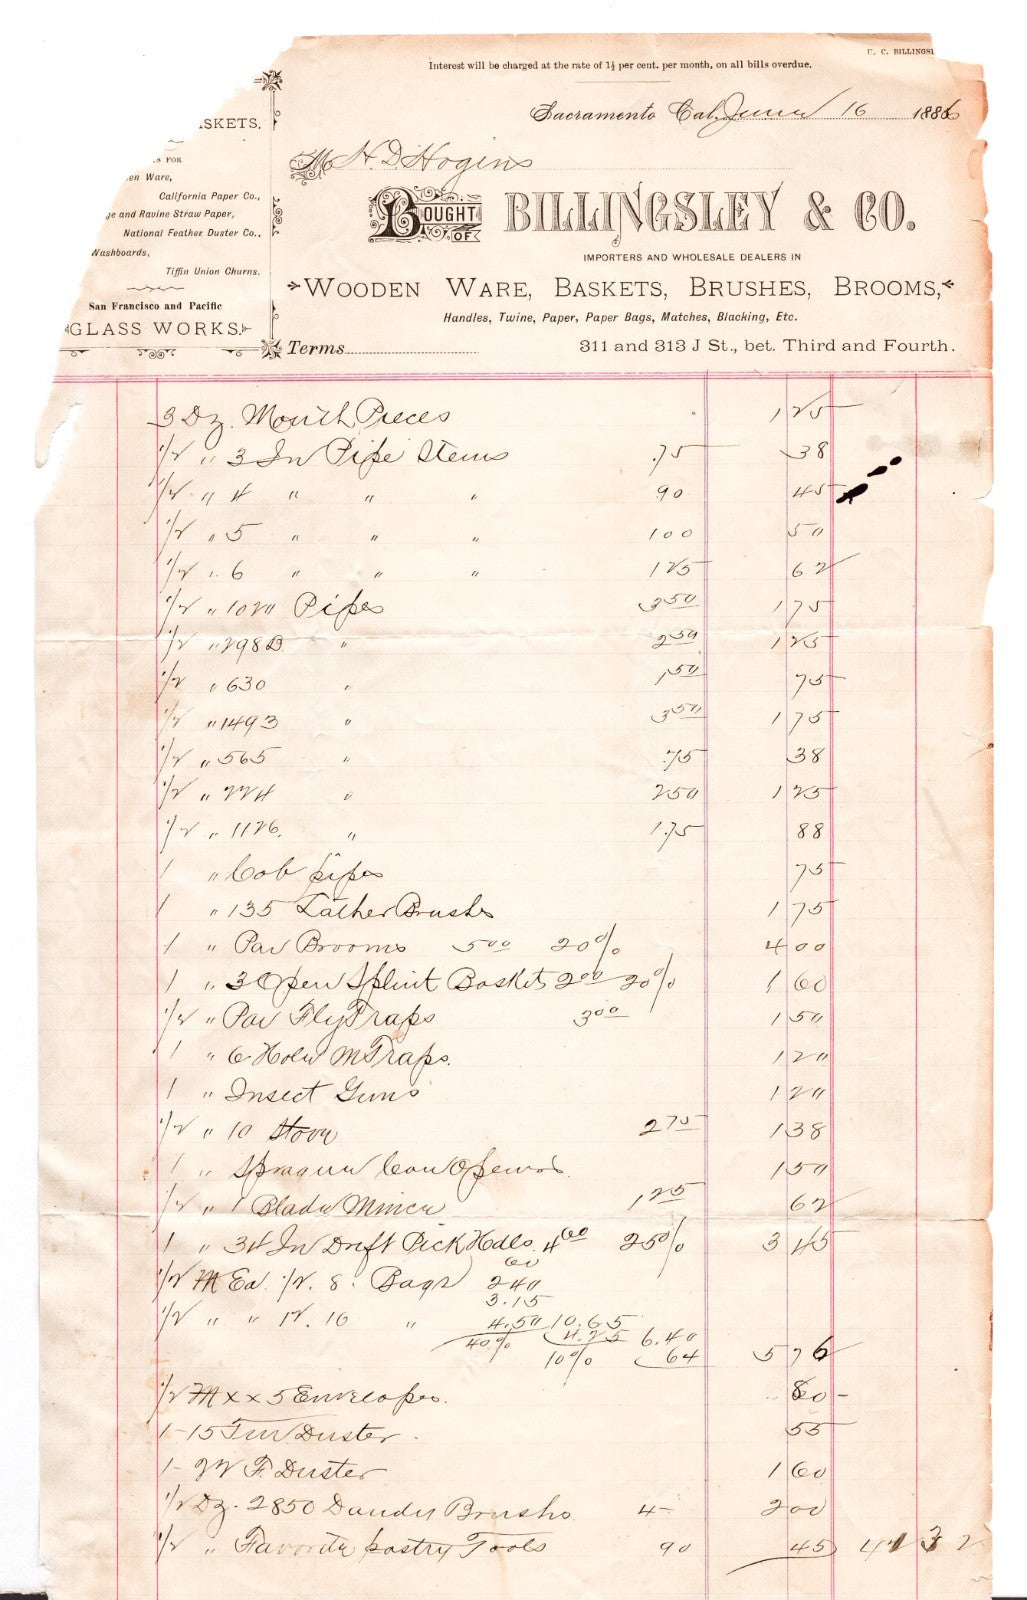 U. C. BILLINGSL
Interest will be charged at the rate of 1½ per cent. per month, on all bills overdue.
Sacramento Cal. June 16 1886
M H. D. Hogins
BOUGHT OF BILLINGSLEY & CO.
IMPORTERS AND WHOLESALE DEALERS IN
WOODEN WARE, BASKETS, BRUSHES, BROOMS,
Handles, Twine, Paper, Paper Bags, Matches, Blacking, Etc.
Terms 311 and 313 J St., bet. Third and Fourth.
ASKETS.
S FOR
en Ware,
California Paper Co.,
ge and Ravine Straw Paper,
National Feather Duster Co.,
Washboards,
Tiffin Union Churns.
San Francisco and Pacific
GLASS WORKS.
3 Dz. Mouth Pieces 1 25
1/2 " 3 In Pipe Stems .75 38
1/2 " 4 " " " 90 45
1/2 " 5 " " " 100 50
1/2 " 6 " " " 125 62
1/2 " 1020 Pipes 3 50 1 75
1/2 " 298D. " 2 50 1 25
1/2 " 630 " 1 50 75
1/2 " 1493 " 3 50 1 75
1/2 " 565 " .75 38
1/2 " 224 " 250 1 25
1/2 " 1126. " 1.75 88
1 " Cob pipes 75
1 " 135 Lather Brushes 1 75
1 " Par Brooms 5 00 20% 4 00
1 " 3 Open Splint Baskets 2 00 20% 1 60
1/2 " Par Fly Traps 3 00 1 50
1 " 6 Hole M Traps. 1 20
1 " Insect Guns 1 20
1/2 " 10 Stove 2 75 1 38
1 " Sprague Can Openers 1 50
1/2 " 1 Blade Mince 1 25 62
1 " 34 In Drift Pick Hdls. 4 60 25% 3 45
60
1/2 M Ea. 1/2. 8. Bags 240
3.15
1/2 " " 12. 16 " 4.50 10.65
40% 4.25 6.40
10% 64 5 76
1/2 M x x 5 Envelopes. 80 -
1-15 Tur. Duster. 55
1- 22 F. Duster 1 60
1/2 Dz. 2850 Dandy Brushes 4- 2 00
1/2 " Favorite pastry Tools 90 45 41 32